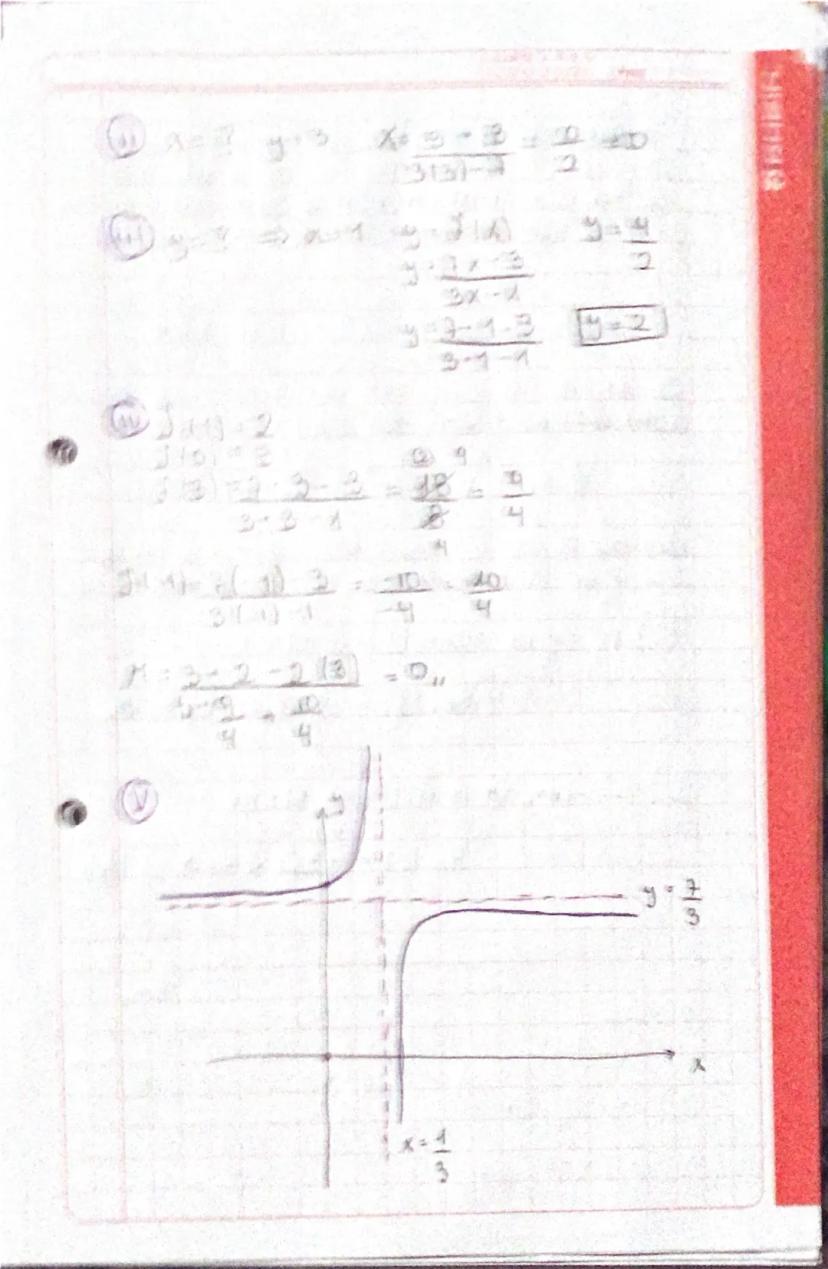 ii) x = ? y = 3 x = \frac{3 - 3}{3(3) - 7} = \frac{0}{2} = 0
iii) y = ? ⇒ x = 1 y = f(x) y = \frac{4}{2}
y = \frac{7x - 3}{3x - 1}
y = \frac{7 · 1 - 3}{3 · 1 - 1} y = 2
f(1) = 2
f(0) = 3
f(3) = \frac{7 · 3 - 3}{3 · 3 - 1} = \frac{18}{8} = \frac{9}{4}
f(-1) = \frac{7(-1) - 3}{3(-1) - 1} = \frac{-10}{-4} = \frac{10}{4}
= \frac{3 - 2 - 2(3)}{ } = 0,,
\frac{9}{4} - \frac{10}{4}
V
y
y = \frac{7}{3}
x
x = \frac{1}{3}